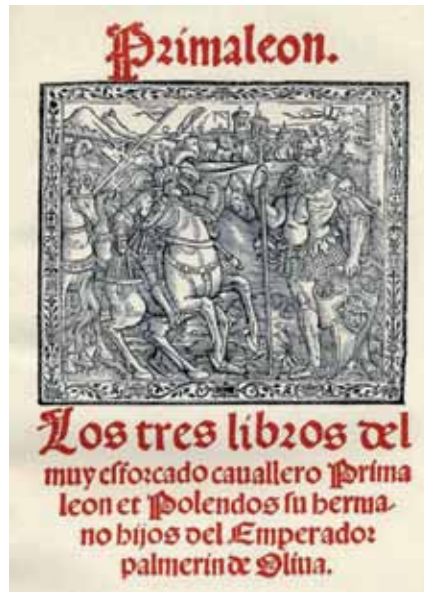 Primaleon.
Los tres libros del
muy esforcado cauallero Prima
leon et Polendos su herma-
no hijos del Emperador
palmerin de Oliua.